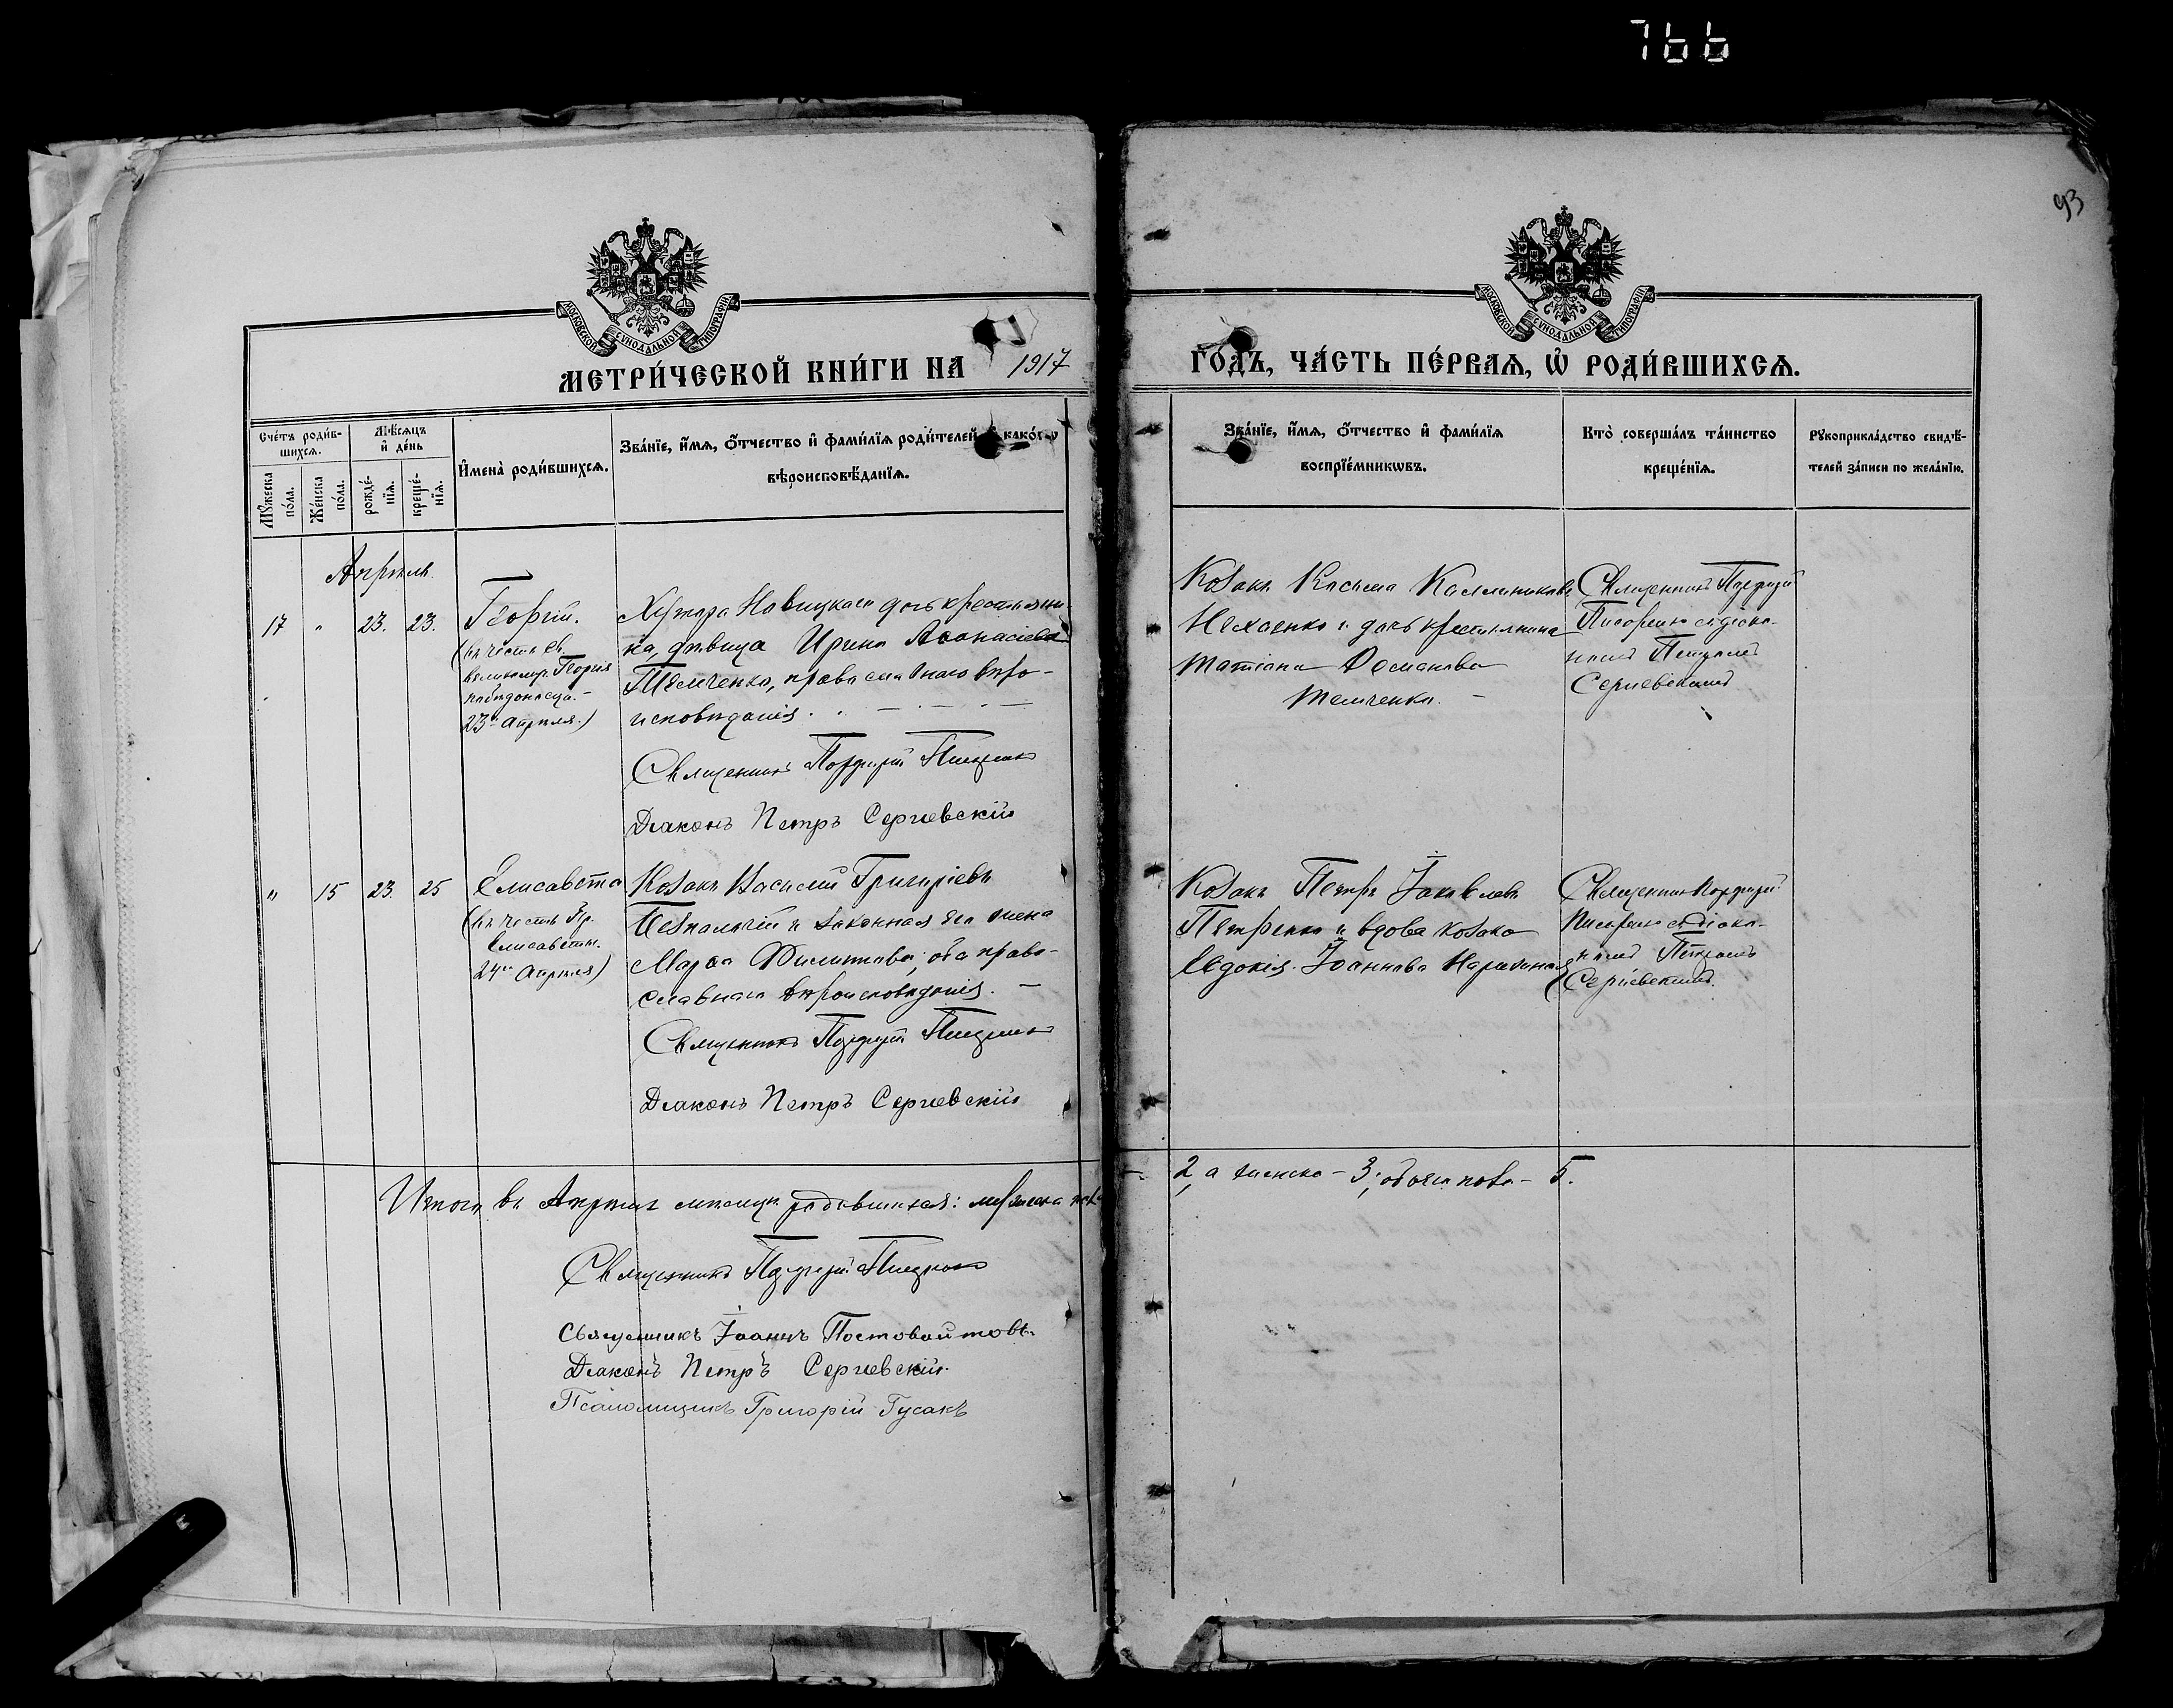 766
93
МОСКОВСКОЙ СѴНОДАЛЬНОЙ ТИПОГРАФІИ
МОСКОВСКОЙ СѴНОДАЛЬНОЙ ТИПОГРАФІИ
МЕТРИ́ЧЕСКОЙ КНИ́ГИ НА 1917 ГО́ДЪ, ЧА́СТЬ ПЕ́РВАѦ, Ѡ҆ РОДИ́ВШИХСѦ.
Сче́тъ роди́в-
шихсѧ.
Мꙋ́жеска по́ла.
Же́нска по́ла.
Мѣ́сѧцъ и҆ де́нь
рожде́-
нїѧ.
креще́-
нїѧ.
И҆мена̀ роди́вшихсѧ.
Зва́нїе, и҆́мѧ, ѻ҆́тчество и҆ фами́лїѧ роди́телей, и҆ како́гѡ
вѣроисповѣ́данїѧ.
Зва́нїе, и҆́мѧ, ѻ҆́тчество и҆ фами́лїѧ
воспрїе́мникѡвъ.
Кто̀ соверша́лъ та́инство
креще́нїѧ.
Рꙋкоприкла́дство свидѣ́-
телей за́писи по жела́нїю.
Апрѣль.
17 " 23. 23.
Георгій.
(въ честь св.
великомуч. Георгія
побѣдоносца.-
23го Апрѣля.)
Хутора Новицкаго дочь крестьяни-
на, дѣвица Ирина Аѳанасіева
Темченко, православнаго вѣро-
исповѣданія.
Священникъ Порфирій
Діаконъ Петръ Сергіевскій
Козакъ Косьма Каллиниковъ
и дочь крестьянина
Татіана Романова
Темченко.
Священникъ Порфирій
съ діако-
номъ Петромъ
Сергіевскимъ
" 15 23. 25
Елисавета
(въ честь Пр.
Елисаветы.
24го Апрѣля)
Козакъ Василій Григоріевъ
Безпалый и законная его жена
Марѳа Филиппова, оба право-
славнаго вѣроисповѣданія.
Священникъ Порфирій
Діаконъ Петръ Сергіевскій
Козакъ Петръ Іаковлевъ
Петренко и вдова козака
Евдокія Іоаннова
Священникъ Порфирій
съ діако-
номъ Петромъ
Сергіевскимъ.
Итого въ Апрѣлѣ мѣсяцѣ родившихся: мужеска пола - 2, а женска - 3; обоего пола - 5.
Священникъ Порфирій
Священникъ Іоаннъ Постовойтовъ
Діаконъ Петръ Сергіевскій.
Псаломщикъ Григорій Гусакъ